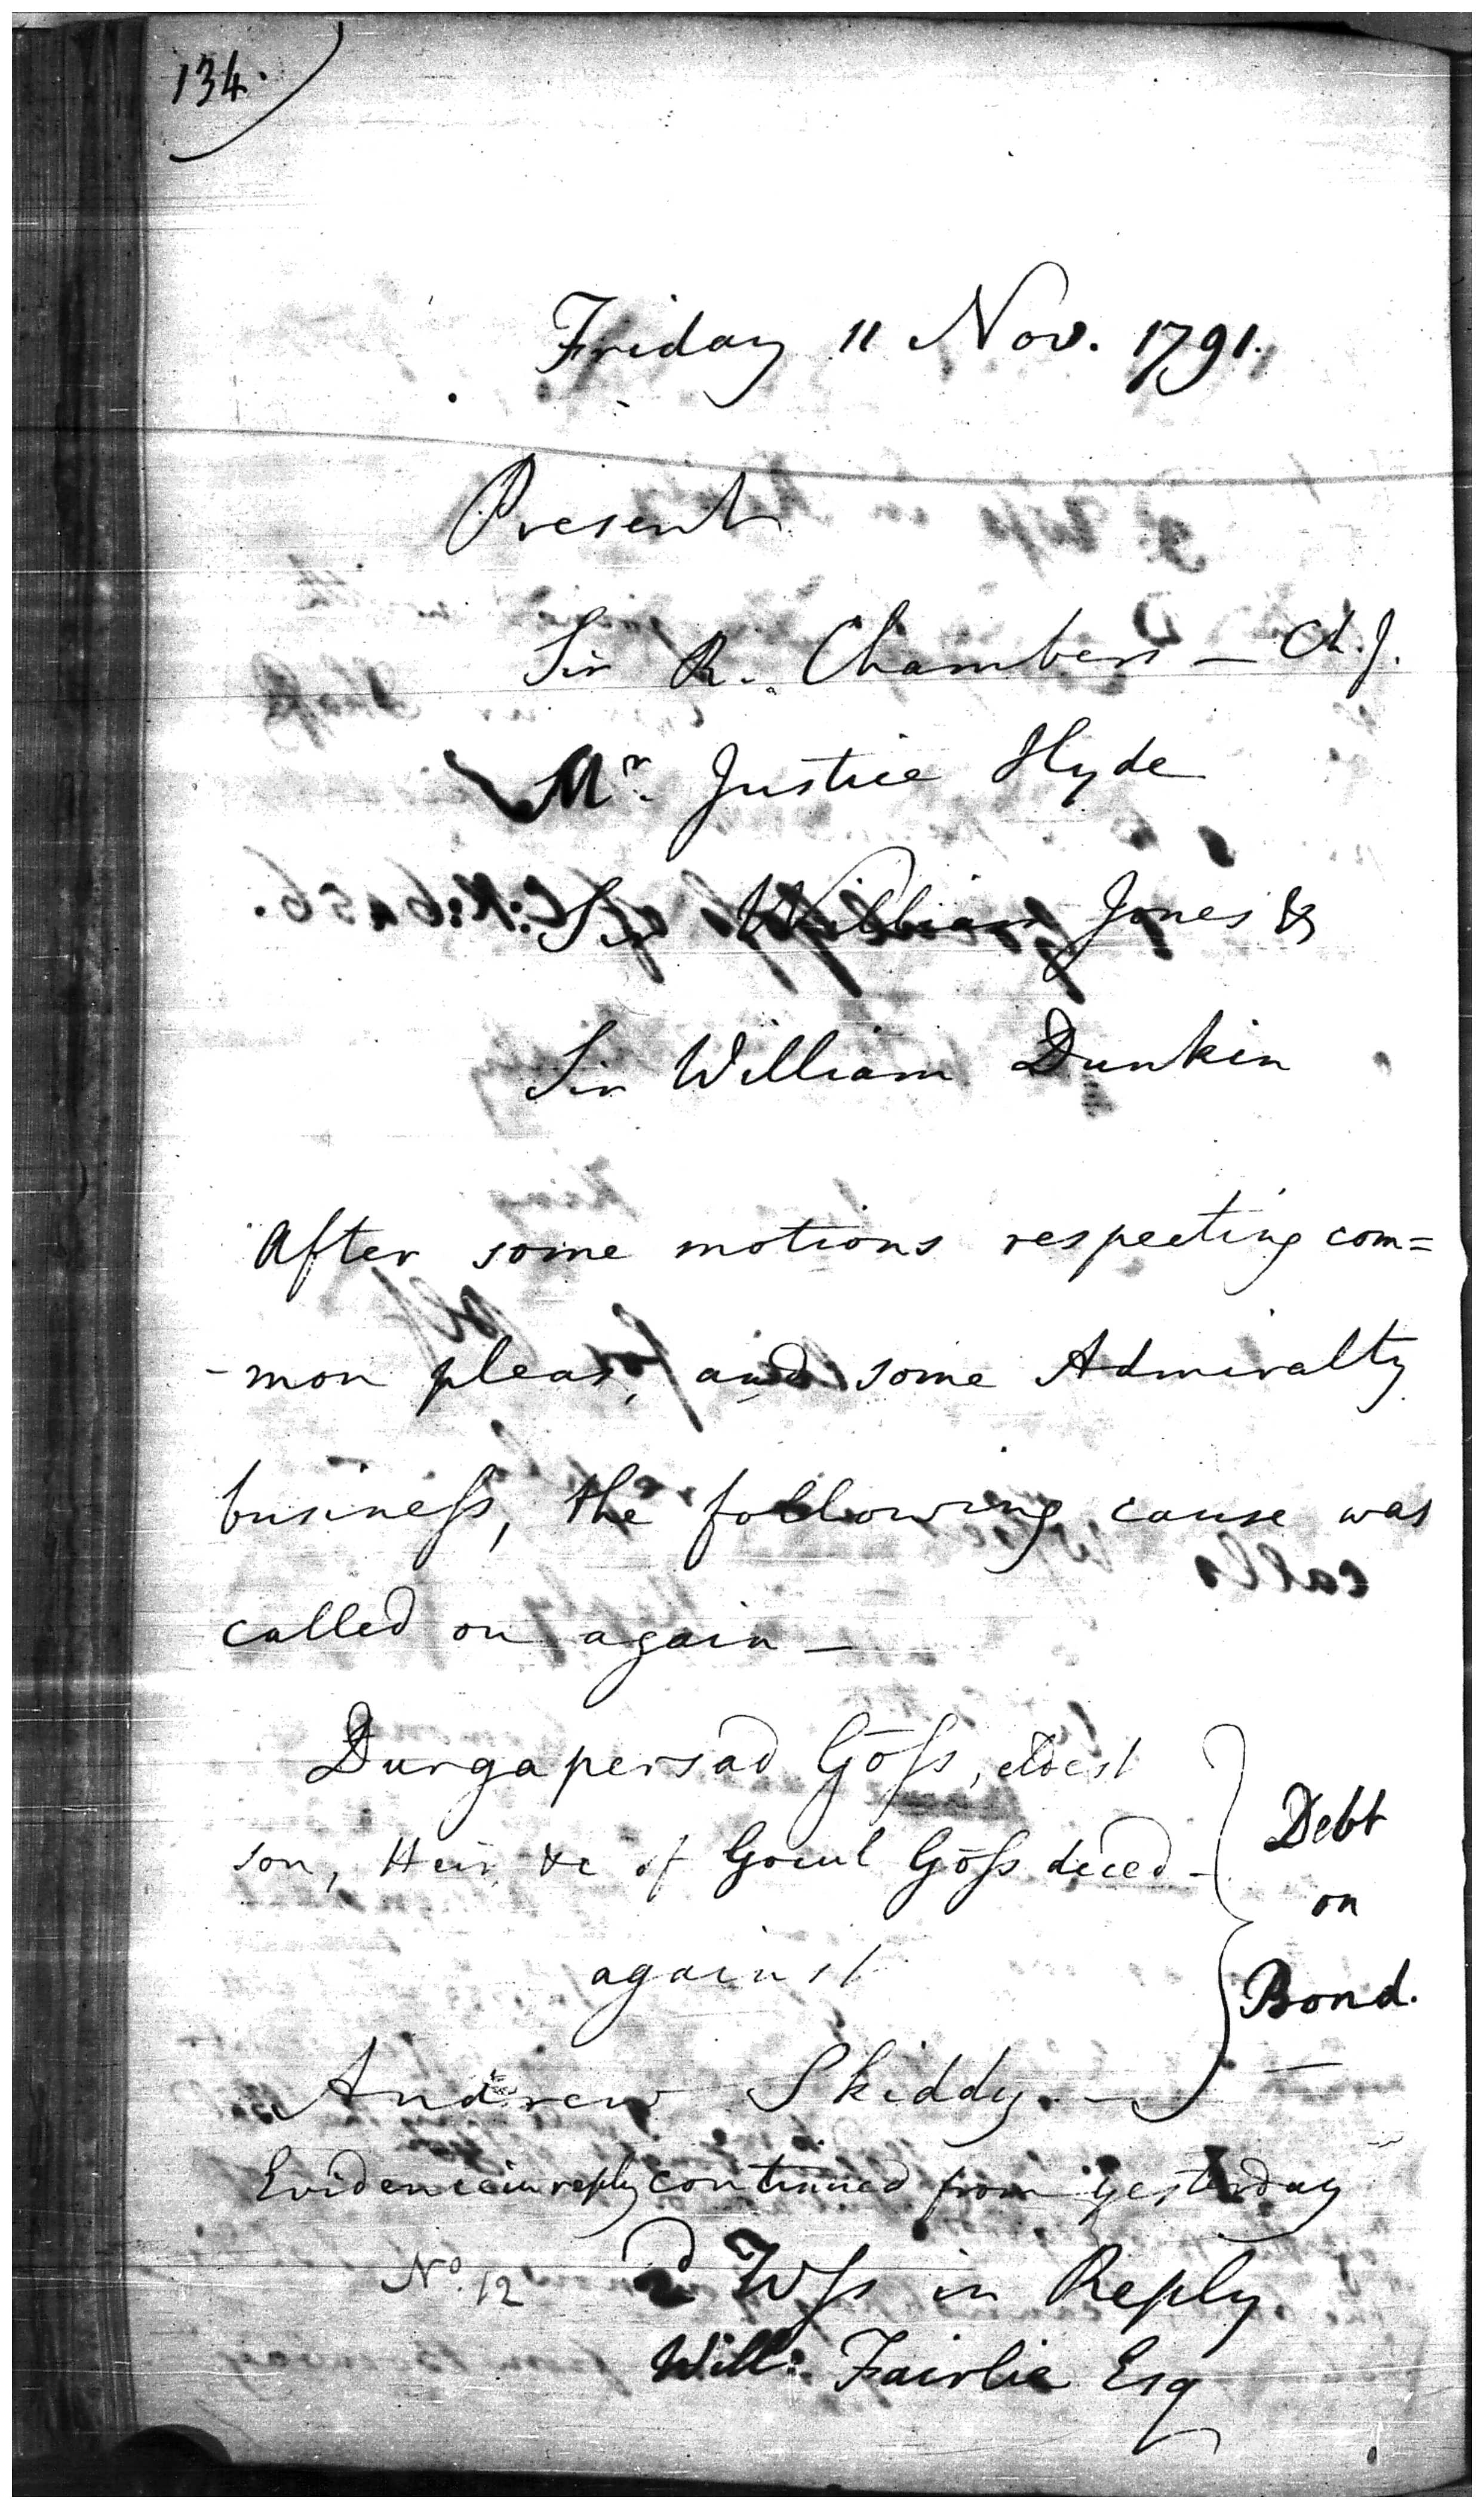 134.
Friday 11 Nov. 1791.
Present
Sir R. Chambers — Ch. J.
Mr. Justice Hyde
Sir William Jones &
Sir William Dunkin
After some motions respecting com=
-mon pleas, and some Admiralty
business, the following cause was
called on again —
Durgapersad Gōss, eldest
son, Heir &c of Gocul Gōss deced —
against
Andrew Skiddy. —
Debt
on
Bond.
Evidence in reply continued from yesterday
No. 12 2d Wss in Reply
Will: Fairlie Esq